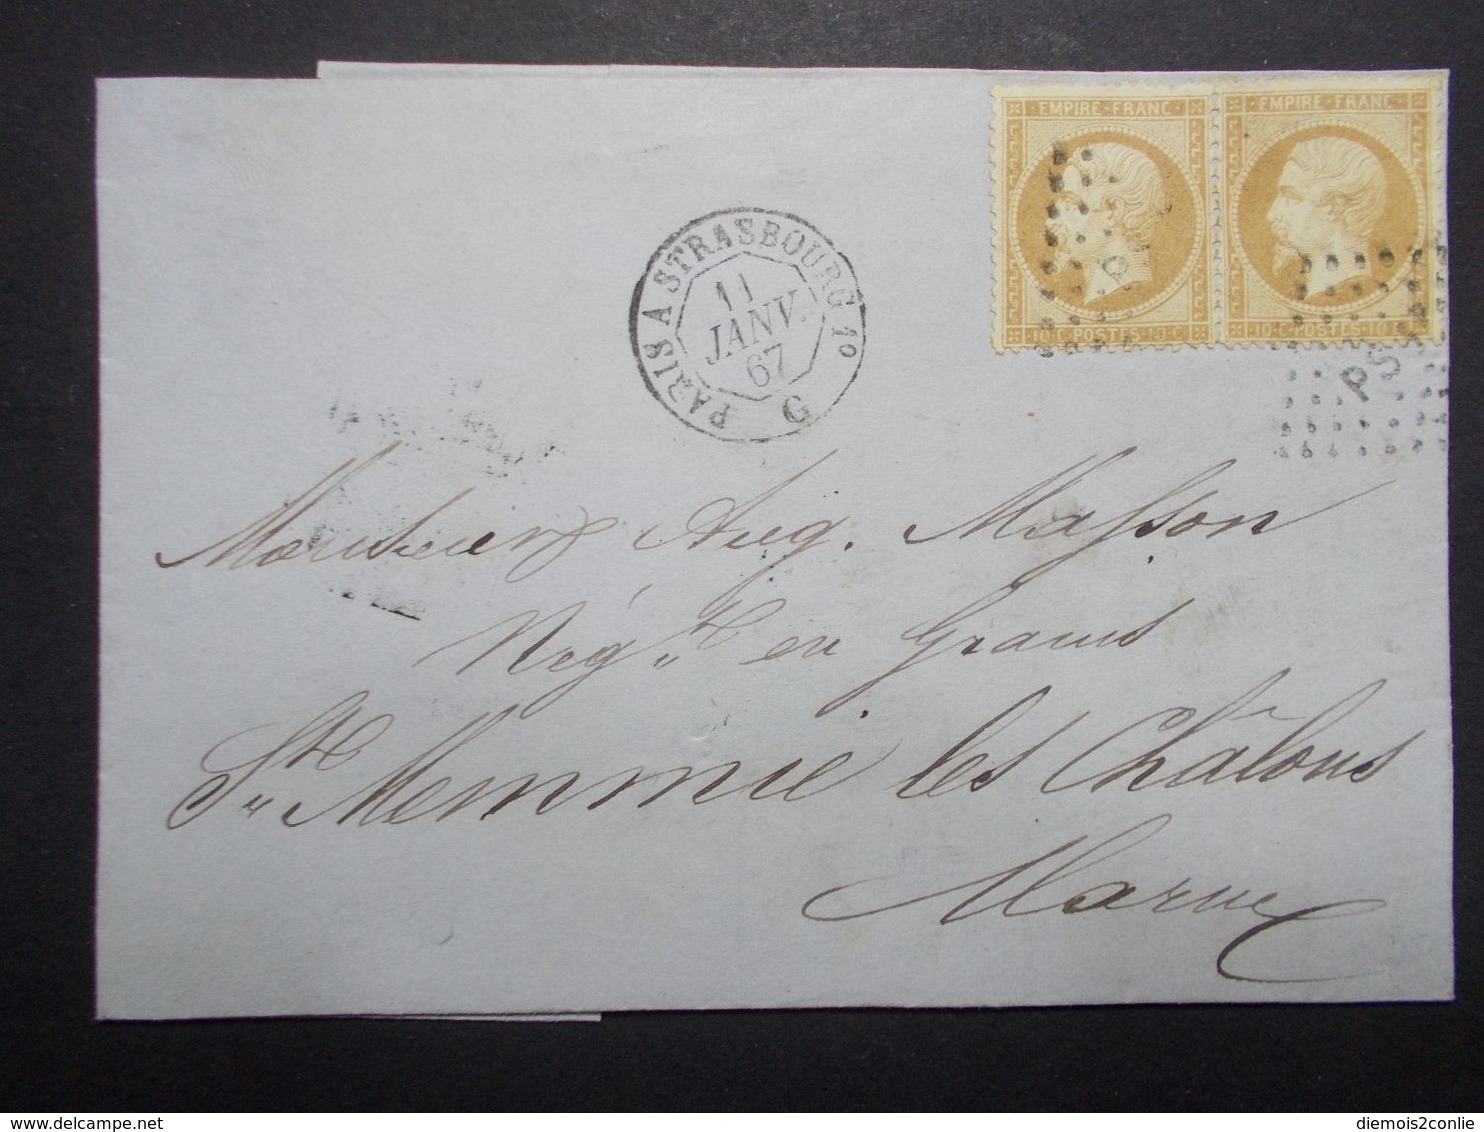 EMPIRE · FRANC
EMPIRE · FRANC
10·C·POSTES·10·C
10·C·POSTES·10·C
PARIS A STRASBOURG 1º
11
JANV.
67
G
PS
Monsieur Aug. Masson
Nég.t en Grains
St Memmie les Châlons
Marne
delcampe.net
diemois2conlie